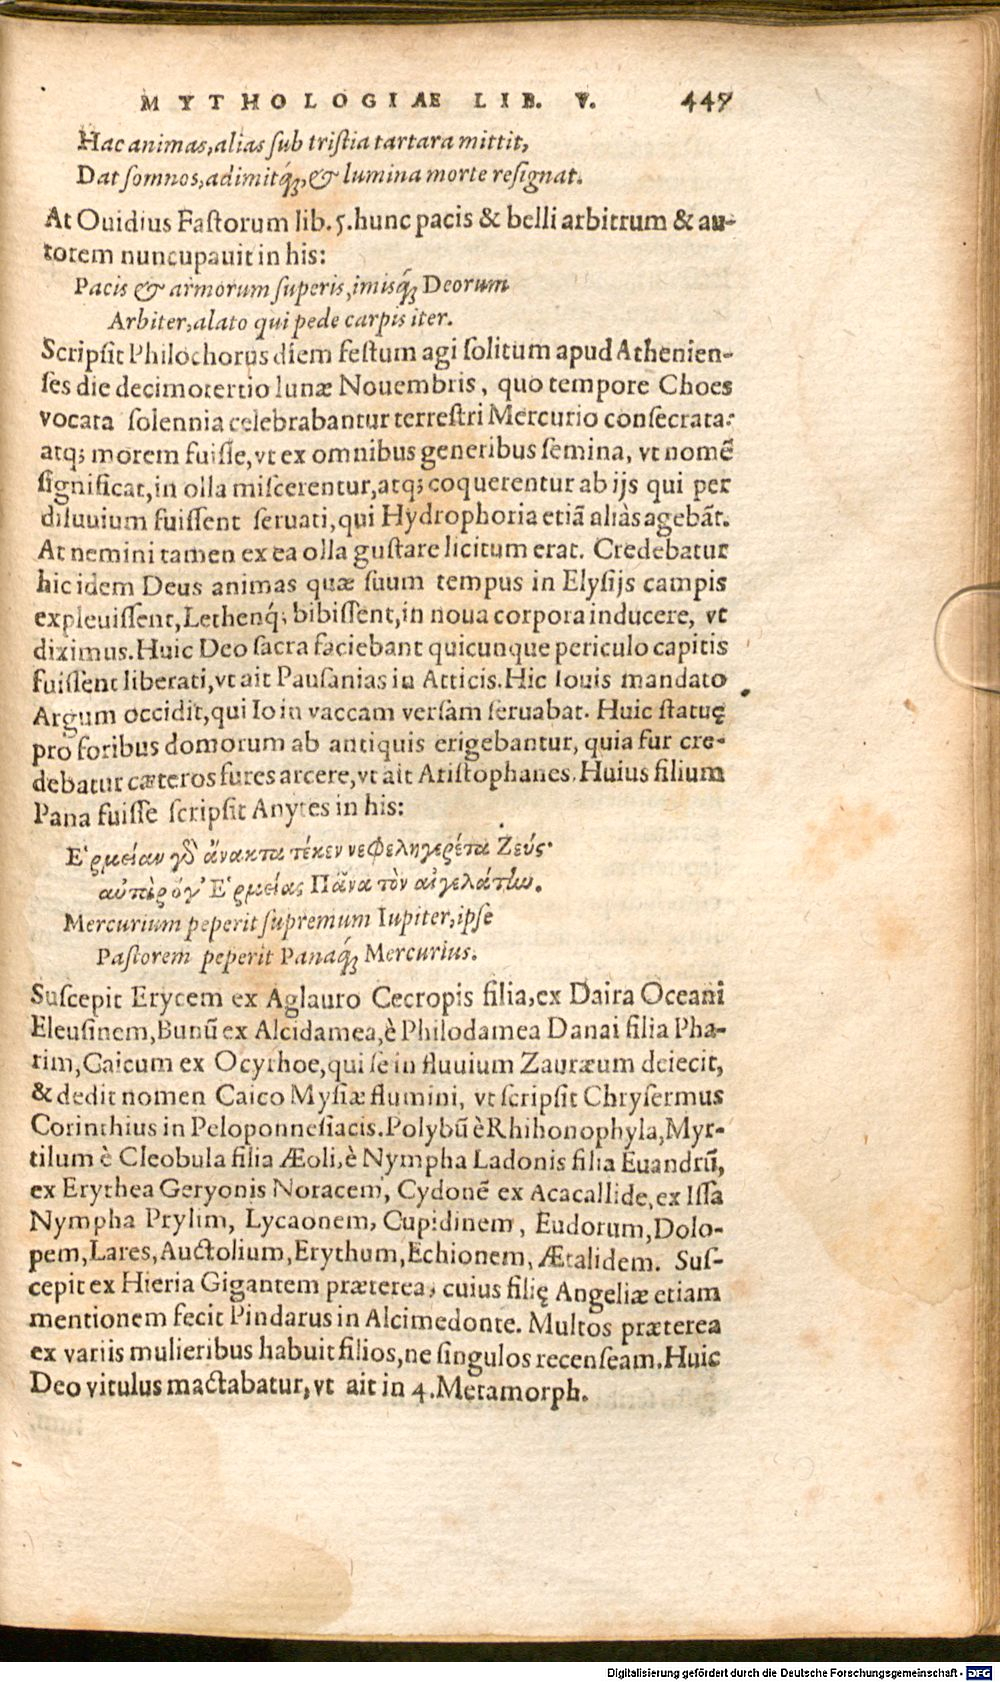 MYTHOLOGIÆ LIB. V. 447
Hac animas, alias sub tristia tartara mittit,
Dat somnos, adimitq́;, & lumina morte resignat.
At Ouidius Fastorum lib. 5. hunc pacis & belli arbitrum & au-
torem nuncupauit in his:
Pacis & armorum superis, imisq́; Deorum
Arbiter, alato qui pede carpis iter.
Scripsit Philochorus diem festum agi solitum apud Athenien-
ses die decimotertio lunæ Nouembris, quo tempore Choes
vocata solennia celebrabantur terrestri Mercurio consecrata:
atq; morem fuisse, vt ex omnibus generibus semina, vt nomē
significat, in olla miscerentur, atq; coquerentur ab ijs qui per
diluuium fuissent seruati, qui Hydrophoria etiā aliàs agebāt.
At nemini tamen ex ea olla gustare licitum erat. Credebatur
hic idem Deus animas quæ suum tempus in Elysijs campis
expleuissent, Lethenq́; bibissent, in noua corpora inducere, vt
diximus. Huic Deo sacra faciebant quicunque periculo capitis
fuissent liberati, vt ait Pausanias in Atticis. Hic Iouis mandato
Argum occidit, qui Io in vaccam versam seruabat. Huic statuę
pro foribus domorum ab antiquis erigebantur, quia fur cre-
debatur cæteros fures arcere, vt ait Aristophanes. Huius filium
Pana fuisse scripsit Anytes in his:
Ἑρμείαν γδ ἄνακτα τέκεν νεφεληγερέτα Ζεύς·
αὐτὰρ ὅγ' Ἑρμείας Πᾶνα τὸν αἰγελάτην.
Mercurium peperit supremum Iupiter, ipse
Pastorem peperit Panaq́; Mercurius.
Suscepit Erycem ex Aglauro Cecropis filia, ex Daira Oceani
Eleusinem, Bunū ex Alcidamea, è Philodamea Danai filia Pha-
rim, Caicum ex Ocythoe, qui se in fluuium Zauræum deiecit,
& dedit nomen Caico Mysiæ flumini, vt scripsit Chrysermus
Corinthius in Peloponnesiacis. Polybū è Rhihonophyla, Myr-
tilum è Cleobula filia Æoli, è Nympha Ladonis filia Euandrū,
ex Erythea Geryonis Noracem, Cydonē ex Acacallide, ex Issa
Nympha Prylim, Lycaonem, Cupidinem, Eudorum, Dolo-
pem, Lares, Auctolium, Erythum, Echionem, Ætalidem. Sus-
cepit ex Hieria Gigantem præterea, cuius filię Angeliæ etiam
mentionem fecit Pindarus in Alcimedonte. Multos præterea
ex variis mulieribus habuit filios, ne singulos recenseam. Huic
Deo vitulus mactabatur, vt ait in 4. Metamorph.
Digitalisierung gefördert durch die Deutsche Forschungsgemeinschaft - DFG